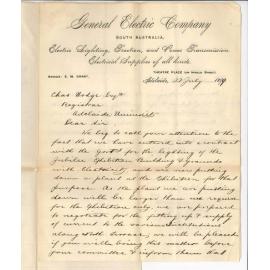 General Electric Company
SOUTH AUSTRALIA.
Electric Lighting, Traction, and Power Transmission
Electrical Supplies of all kinds.
THEATRE PLACE
Adelaide 22 July 18
Chas Hodge Esqre
Registrar
Adelaide University
Dear Sir
We beg to call your attention to the
fact that we have entered into a contract
with the Govt for the lighting of the
Jubilee Exhibition Building & grounds
with electricity and are now putting
down a plant at the Exhibition for that
purpose. As the plant we are putting
down will be larger than we require
for the Exhibition only, we are prepared
to negotiate for the fitting up & supply
of current to the various institutions
along North Terrace, we will be pleased
if you will bring this matter before
your committee & inform them that